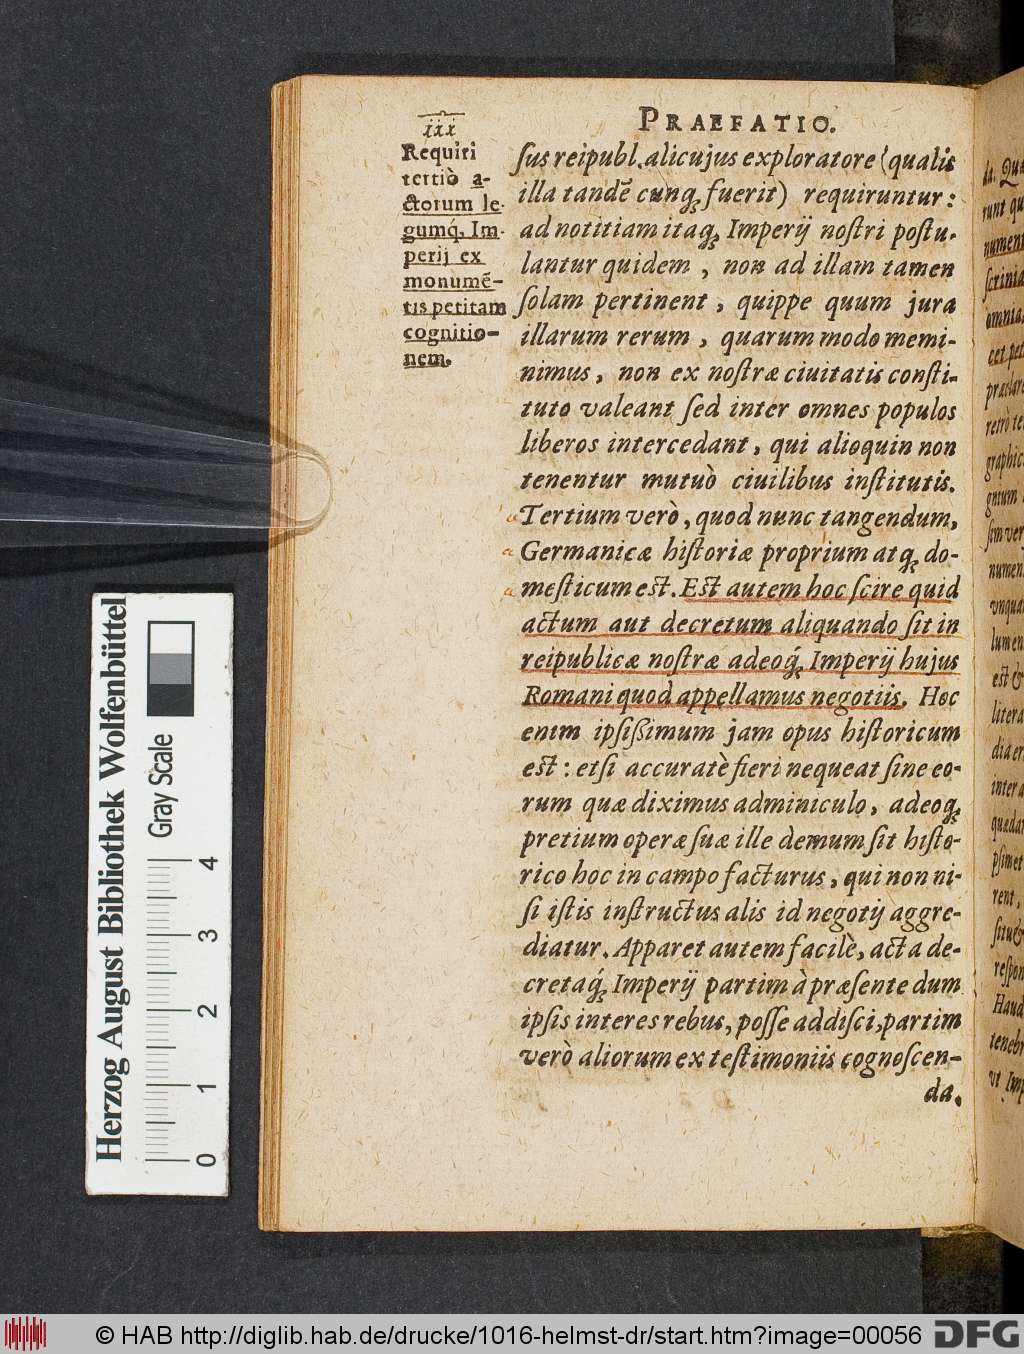 PRAEFATIO.
iii
Requiri
tertiò a-
ctorum le-
gumq́; Im-
perij ex
monumē-
tis petitam
cognitio-
nem.
ſus reipubl. alicujus exploratore (qualis
illa tandē cunq; fuerit) requiruntur:
ad notitiam itaq; Imperij noſtri poſtu-
lantur quidem, non ad illam tamen
ſolam pertinent, quippe quum jura
illarum rerum, quarum modo memi-
nimus, non ex noſtræ ciuitatis conſti-
tuto valeant ſed inter omnes populos
liberos intercedant, qui alioquin non
tenentur mutuò ciuilibus inſtitutis.
Tertium verò, quod nunc tangendum,
Germanicæ hiſtoriæ proprium atq; do-
meſticum eſt. Eſt autem hoc ſcire quid
actum aut decretum aliquando ſit in
reipublicæ noſtræ adeoq́; Imperij hujus
Romani quod appellamus negotiis. Hoc
enim ipſiſſimum jam opus hiſtoricum
eſt: etſi accuratè fieri nequeat ſine eo-
rum quæ diximus adminiculo, adeoq;
pretium operæ ſuæ ille demum ſit hiſto-
rico hoc in campo facturus, qui non ni-
ſi iſtis inſtructus alis id negotij aggre-
diatur. Apparet autem facilè, acta de-
cretaq́; Imperij partim à præſente dum
ipſis intereſ rebus, poſſe addiſci, partim
verò aliorum ex teſtimoniis cognoſcen-
da.
da. Qua
runt qu
nument
ſcrinia
omnia,
cet pet
præclare
retrò te
graphic
gnum
ſim ver
numen
vnquam
lumen
eſt &
litera
dia er
inter a
quædam
pſimet
rent,
ſitu &
reſpon
Haud
tenebr
vt Imp
Herzog August Bibliothek Wolfenbüttel
Gray Scale
0 1 2 3 4
© HAB http://diglib.hab.de/drucke/1016-helmst-dr/start.htm?image=00056
DFG